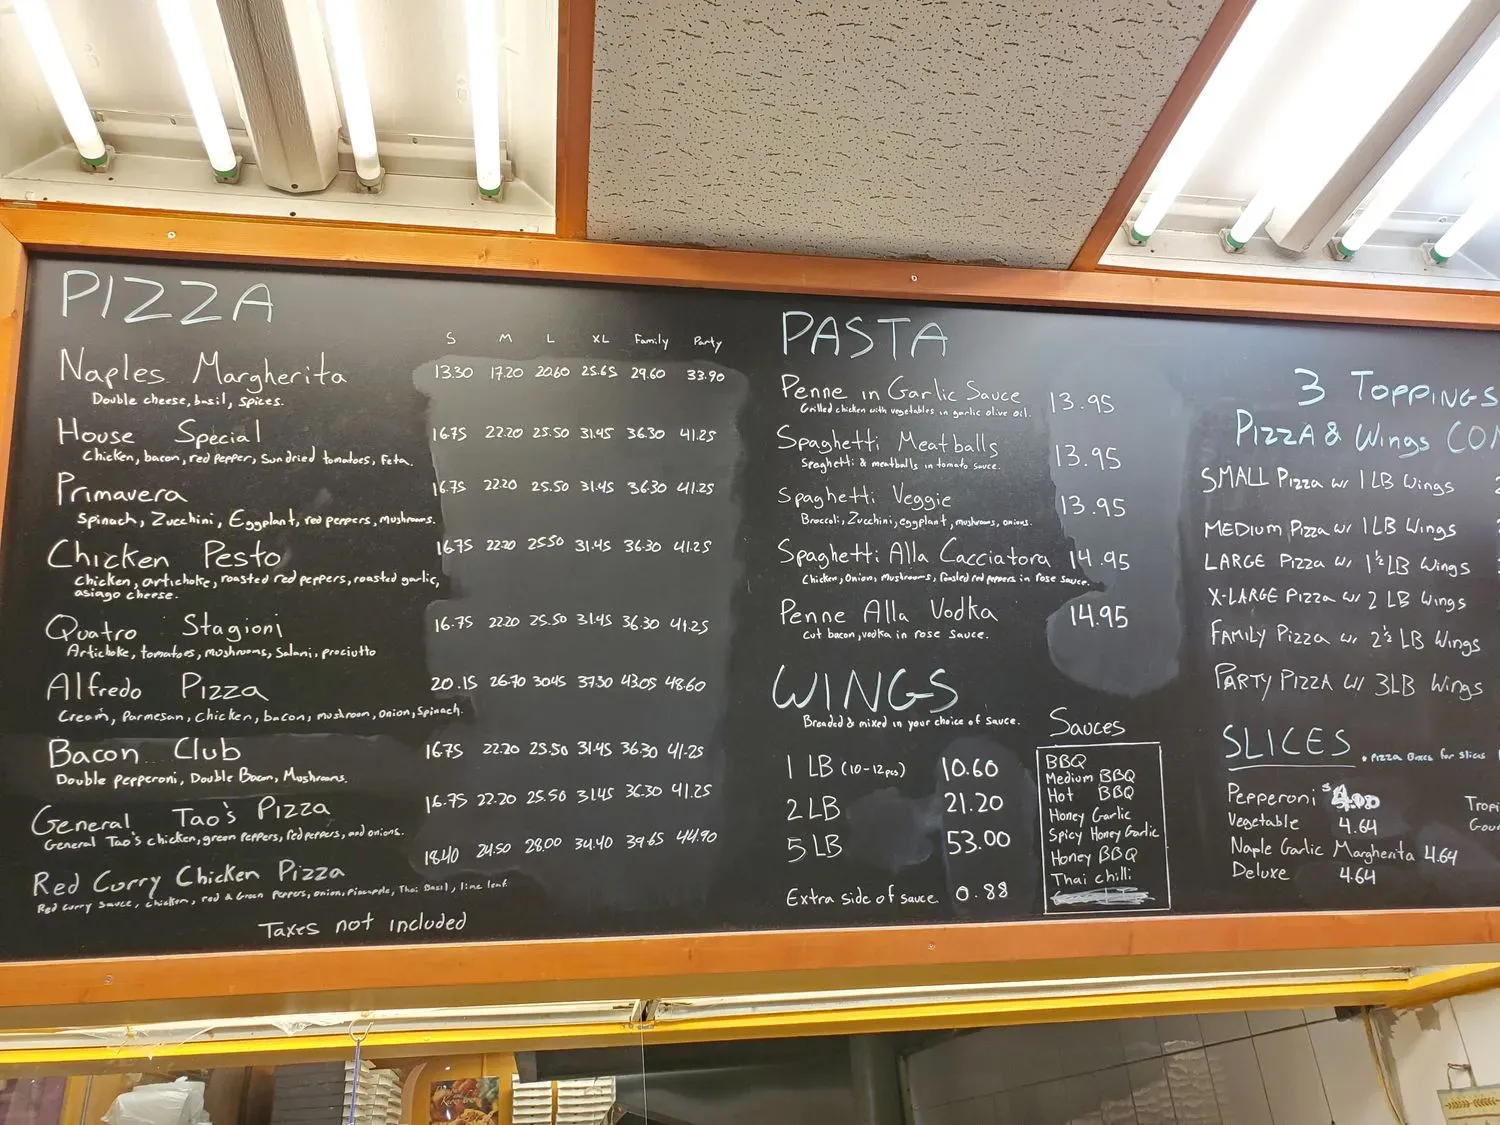 PIZZA
S M L XL Family Party
Naples Margherita 13.30 17.20 20.60 25.65 29.60 33.90
Double cheese, basil, spices.
House Special 16.75 22.20 25.50 31.45 36.30 41.25
Chicken, bacon, red pepper, Sundried tomatoes, Feta.
Primavera 16.75 22.20 25.50 31.45 36.30 41.25
Spinach, Zucchini, Eggplant, red peppers, mushrooms.
Chicken Pesto 16.75 22.20 25.50 31.45 36.30 41.25
Chicken, artichoke, roasted red peppers, roasted garlic,
asiago cheese.
Quatro Stagioni 16.75 22.20 25.50 31.45 36.30 41.25
Artichoke, tomatoes, mushrooms, Salami, prociutto
Alfredo Pizza 20.15 26.70 30.45 37.30 43.05 48.60
Cream, Parmesan, chicken, bacon, mushroom, onion, Spinach.
Bacon Club 16.75 22.20 25.50 31.45 36.30 41.25
Double pepperoni, Double Bacon, Mushrooms.
General Tao's Pizza 16.75 22.20 25.50 31.45 36.30 41.25
General Tao's chicken, green peppers, red peppers, and onions.
Red Curry Chicken Pizza 18.40 24.50 28.00 34.40 39.65 44.90
Red curry sauce, chicken, red & Green Peppers, onion, Pineapple, Thai Basil, lime leaf.
Taxes not included
PASTA
Penne in Garlic Sauce 13.95
Grilled chicken with vegetables in garlic olive oil.
Spaghetti Meatballs 13.95
Spaghetti & meatballs in tomato sauce.
Spaghetti Veggie 13.95
Broccoli, Zucchini, eggplant, mushrooms, onions.
Spaghetti Alla Cacciatora 14.95
Chicken, Onion, Mushrooms, Roasted red peppers in rose sauce.
Penne Alla Vodka 14.95
Cut bacon, vodka in rose sauce.
WINGS
Breaded & mixed in your choice of sauce.
1 LB (10-12pcs) 10.60
2 LB 21.20
5 LB 53.00
Extra side of sauce 0.88
Sauces
BBQ
Medium BBQ
Hot BBQ
Honey Garlic
Spicy Honey Garlic
Honey BBQ
Thai chilli
3 TOPPINGS
PIZZA & Wings CO
SMALL Pizza w/ 1 LB Wings
MEDIUM Pizza w/ 1 LB Wings
LARGE Pizza w/ 1½ LB Wings
X-LARGE Pizza w/ 2 LB Wings
FAMILY Pizza w/ 2½ LB Wings
PARTY PIZZA w/ 3LB Wings
SLICES
• Pizza Boxes for slices
Pepperoni
Vegetable 4.64
Naple Garlic Margherita 4.64
Deluxe 4.64